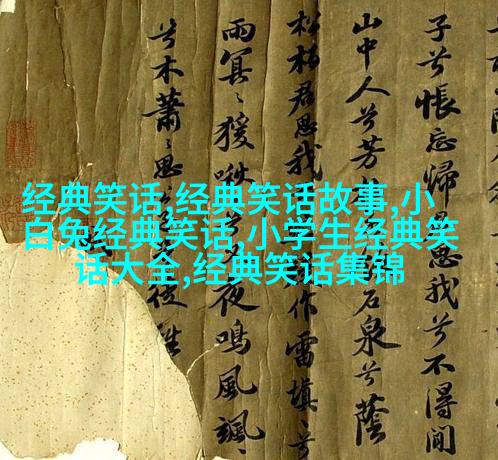 子兮悵忘歸思我兮不得閒
山中人兮芳石泉兮蔭
松柏君思我作雷填〻兮
雨冥〻猨啾夜鳴風颯〻
兮木蕭〻思
经典笑话,经典笑话故事,小
白兔经典笑话,小学生经典笑
话大全,经典笑话集锦